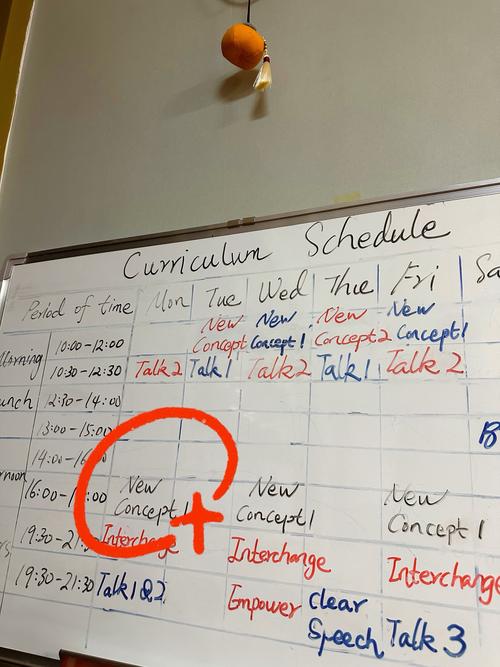 Curriculum Schedule
Period of time Mon Tue Wed Thue Fri Sa
10:00-12:00 New Concept New Concept 1 New Concept 2 New Concept 1
10:30-12:30 Talk 2 Talk 1 Talk 2 Talk 1 Talk 2
12:30-14:00
13:00-15:00 B
14:00-16
16:00- :00 New Concept 1 New Concept 1 New Concept 1
19:30-21: Interchange Interchange Interchange
19:30-21:30 Talk 1@2 Empower Clear Speech Talk 3